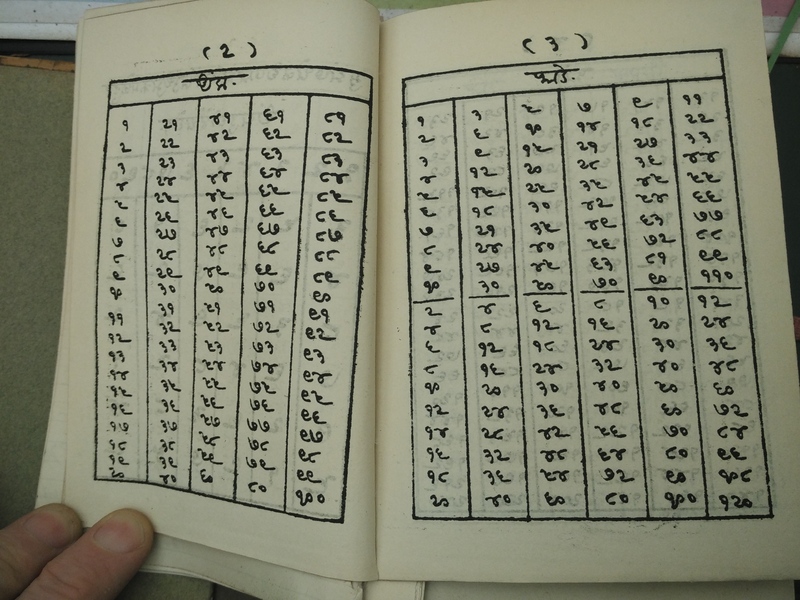 ( २ )
१ २१ ४१ ६१ ८१
२ २२ ४२ ६२ ८२
३ २३ ४३ ६३ ८३
४ २४ ४४ ६४ ८४
५ २५ ४५ ६५ ८५
६ २६ ४६ ६६ ८६
७ २७ ४७ ६७ ८७
८ २८ ४८ ६८ ८८
९ २९ ४९ ६९ ८९
१० ३० ५० ७० ९०
११ ३१ ५१ ७१ ९१
१२ ३२ ५२ ७२ ९२
१३ ३३ ५३ ७३ ९३
१४ ३४ ५४ ७४ ९४
१५ ३५ ५५ ७५ ९५
१६ ३६ ५६ ७६ ९६
१७ ३७ ५७ ७७ ९७
१८ ३८ ५८ ७८ ९८
१९ ३९ ५९ ७९ ९९
२० ४० ६० ८० १००
( ३ )
१ ३ ५ ७ ९ ११
२ ६ १० १४ १८ २२
३ ९ १५ २१ २७ ३३
४ १२ २० २८ ३६ ४४
५ १५ २५ ३५ ४५ ५५
६ १८ ३० ४२ ५४ ६६
७ २१ ३५ ४९ ६३ ७७
८ २४ ४० ५६ ७२ ८८
९ २७ ४५ ६३ ८१ ९९
१० ३० ५० ७० ९० ११०
२ ४ ६ ८ १० १२
४ ८ १२ १६ २० २४
६ १२ १८ २४ ३० ३६
८ १६ २४ ३२ ४० ४८
१० २० ३० ४० ५० ६०
१२ २४ ३६ ४८ ६० ७२
१४ २८ ४२ ५६ ७० ८४
१६ ३२ ४८ ६४ ८० ९६
१८ ३६ ५४ ७२ ९० १०८
२० ४० ६० ८० १०० १२०